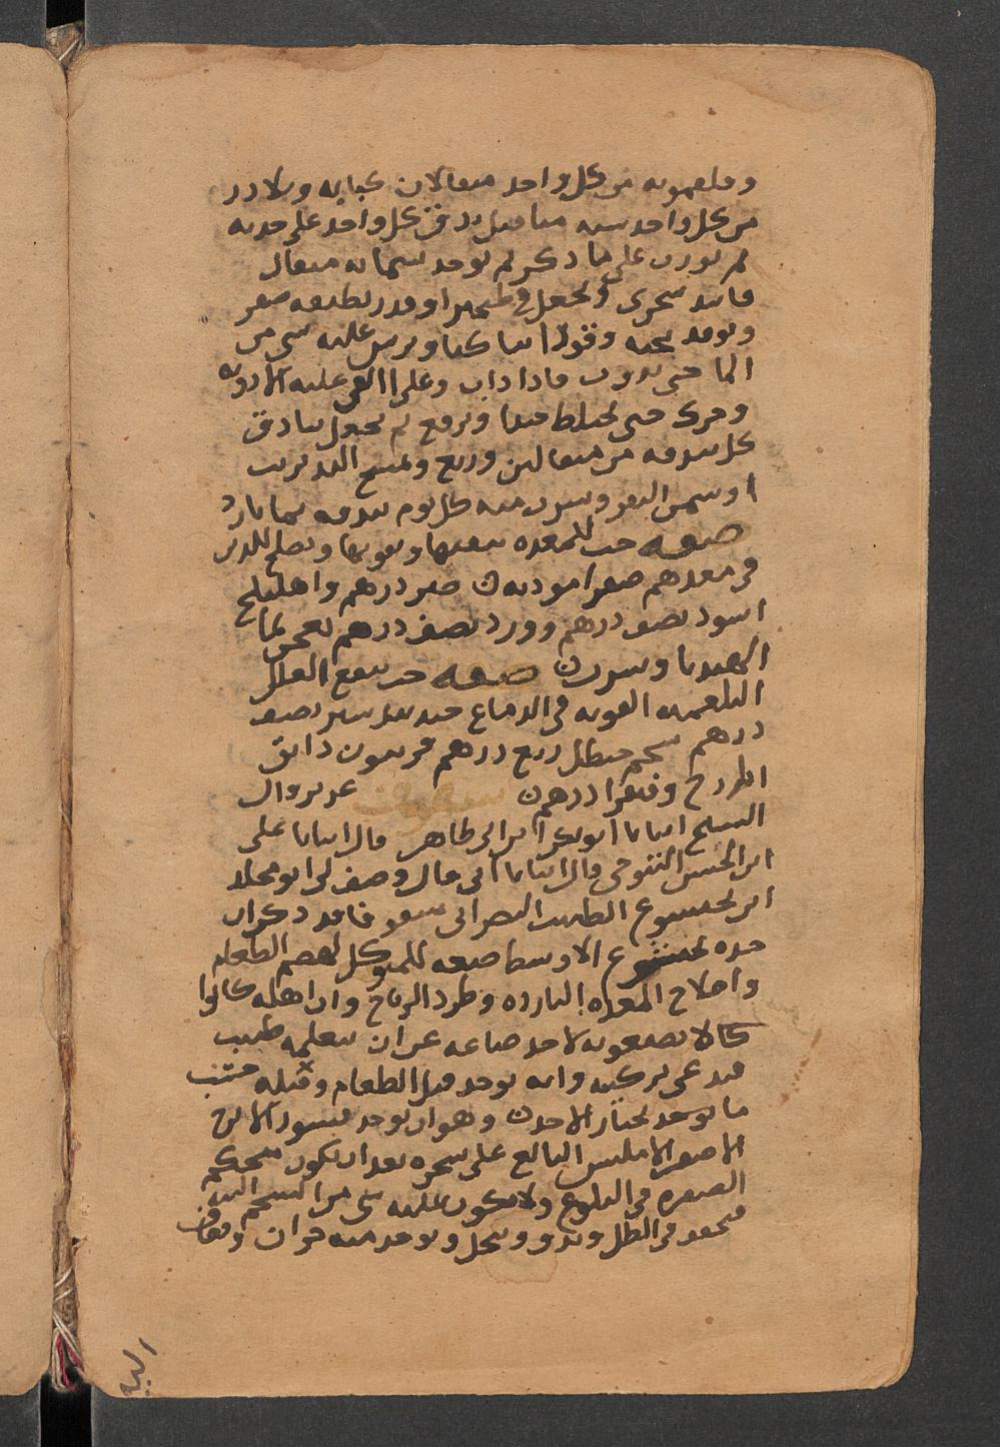 وفلغمويه من كل واحد مثقالان كبابه وبلادر
من كل واحد سته مثاقيل يدق كل واحد على حده
ثم يوزن على ما ذكر ثم يوخذ ستمايه مثقال
فانيد سجزى ويجعل فى طنجير او قدر نظيفه صفر
ويوقد تحته وقودا ساكنا ويرش عليه شى من
الما حتى يذوب فاذا ذاب وغلى القى عليه الادويه
وحرك حتى يختلط جيدا ويرفع ثم يجعل بنادق
كل بندقه من مثقالين وربع ويمسح اليد بزيت
او سمن البقر ويشرب منه كل يوم بندقه بما بارد
صفه حب للمعده ينقيها ويقويها ويصلح للذين
فى معدهم صفرا موذيه صبر درهم واهليلج
اسود نصف درهم وورد نصف درهم يعجن بما
الهندبا ويشرب صفه حب ينفع العلل
البلغميه القويه فى الدماع جندبيدستر نصف
درهم شحم حنظل ربع درهم فربيون دانق
ايارج فيقرا درهم سفوفات عزيز قال
الشيخ انبانا ابو بكر ابن ابى طاهر قال انبانا على
ابن المحسن التنوخى قال انبانا ابى قال وصف لى ابو مخلد
ابن بختيشوع الطبيب النصرانى سفوفا قد ذكر ان
جده بختيشوع الاوسط صنعه للمتوكل لهضم الطعام
واصلاح المعده البارده وطرد الرياح وان اهله كانوا
كالا يصفونه لاحد صناعه عن ان يتعلمه طبيب
فيدعى تركيبه وانه يوخذ قبل الطعام وقبله حسب
ما يوخذ يختار الاخذ وهو ان يوخذ قشور الاترج
الاصفر الاملس البالغ على شجره بعد ان يكون مستحكم
الصفره فى البلوغ ولا يكون عليه شى من الشحم البته
فيجفف فى الظل ويدق وينخل ويوخذ منه جزان